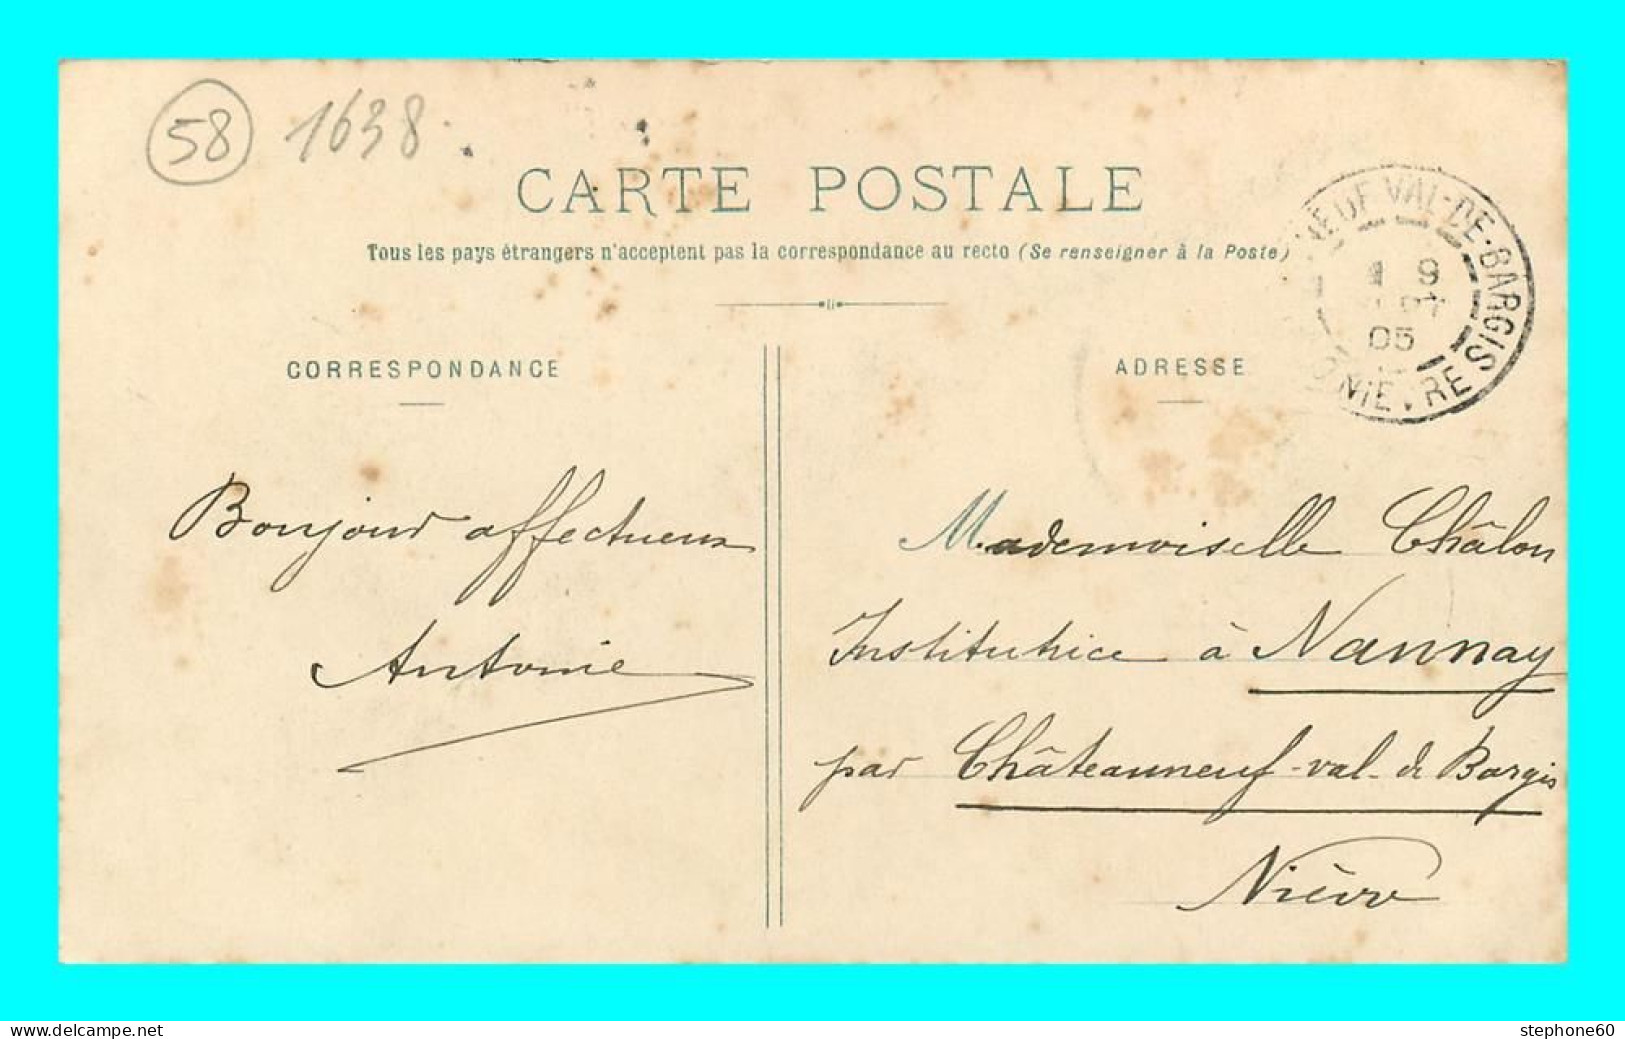 58 1638
CARTE POSTALE
Tous les pays étrangers n'acceptent pas la correspondance au recto (Se renseigner à la Poste)
VAL-DE-BARGIS
05
NIEVRE
CORRESPONDANCE
ADRESSE
Bonjour affectueux
Antonie
Mademoiselle Châlon
Institutrice à Nannay
par Châteauneuf-val-de Bargis
Nièvre
www.delcampe.net
stephone60